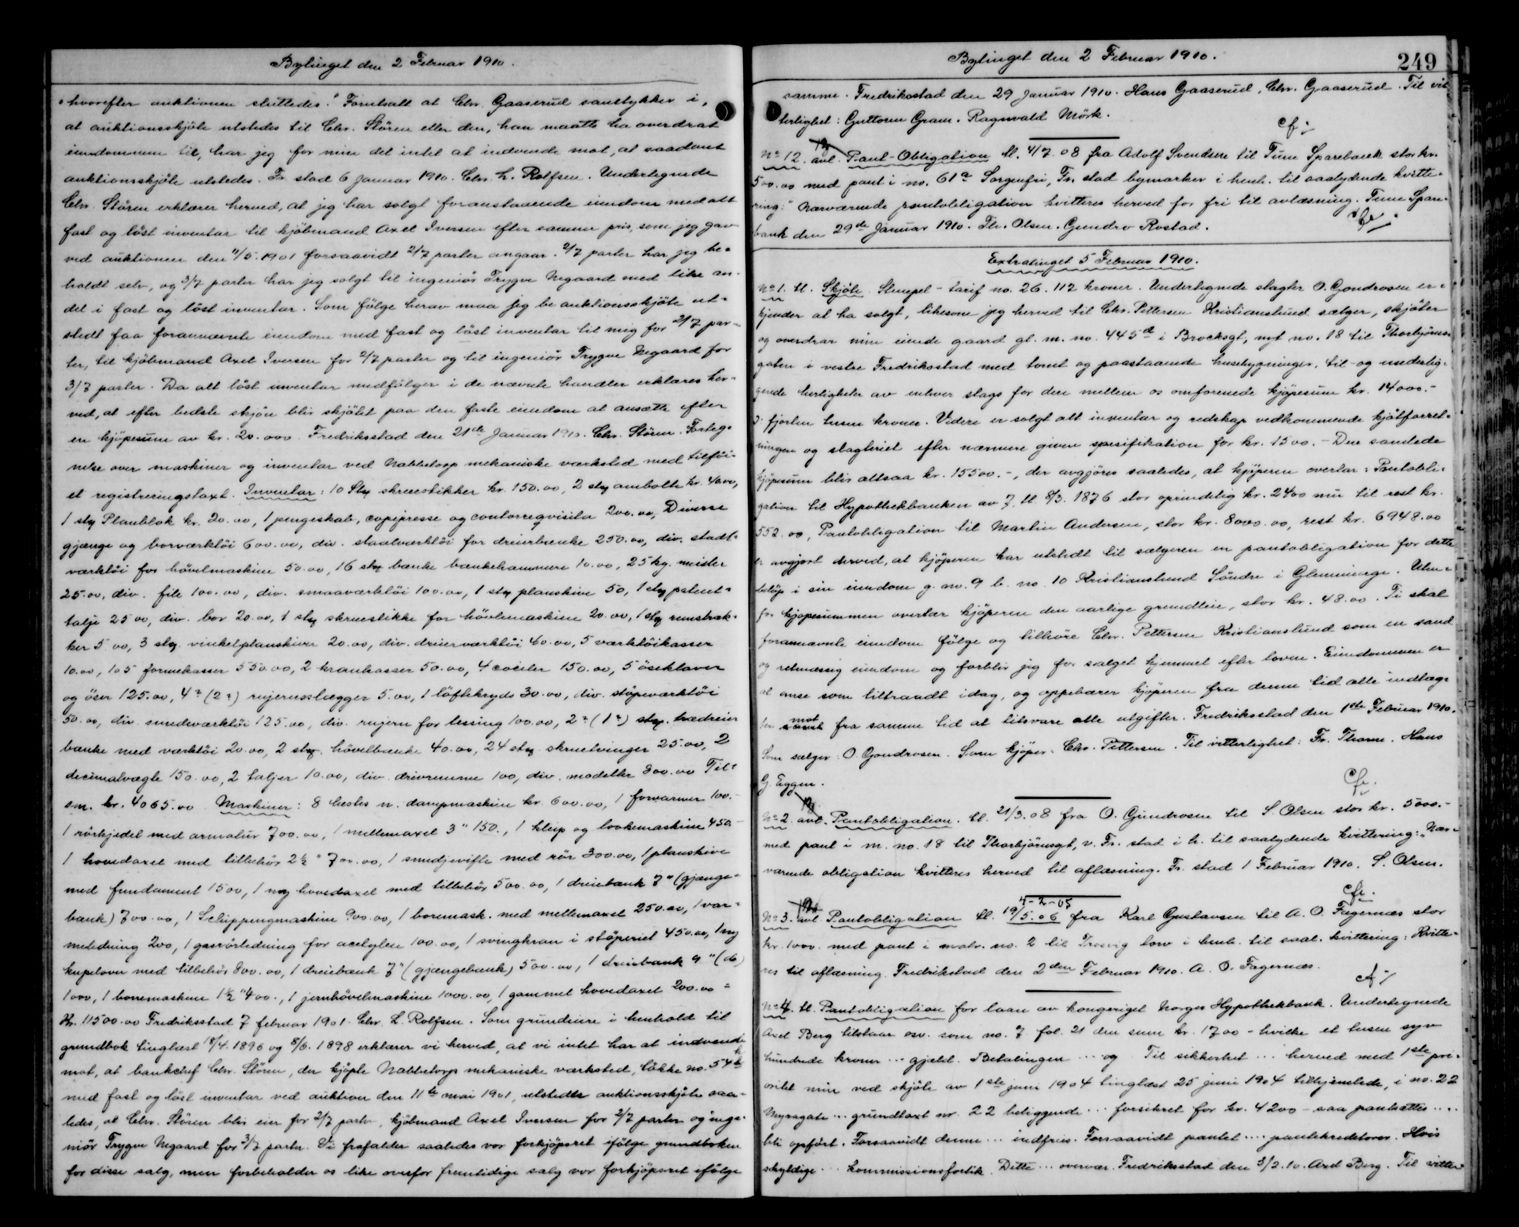 Bytinget den 2 Februar 1910.
hvorefter auktionen sluttedes." Forutsatt at Chr. Gaaserud samtykker i,
at auktionsskjöte utstedes til Chr. Stören eller den, han maatte ha overdrat
eiendommen til, har jeg for min del intet at indvende mot, at saadant
auktionsskjöte utstedes. Fr. stad 6 januar 1910. Chr. L. Rolfsen. Undertegnede
Chr. Stören erklærer herved, at jeg har solgt foranstaaende eiendom med alt
fast og löst inventar til kjöbmand Axel Iversen efter samme pris, som jeg gav
ved auktionen den 11/5 1901 forsaavidt 2/7 parter angaar. 2/7 parter har jeg be-
holdt selv, og 3/7 parter har jeg solgt til ingeniör Trygve Negaard med like an-
del i fast og löst inventar. Som fölge herav maa jeg be auktionsskjöte ut-
stedt faa forannævnte eiendom med fast og löst inventar til mig for 2/7 par-
ter, til kjöbmand Axel Iversen for 2/7 parter og til ingeniör Trygve Negaard for
3/7 parter. Da alt löst inventar medfölger i de nævnte handler erklæres her-
ved, at efter bedste skjön blir skjötet paa den faste eiendom at ansætte efter
en kjöpesum av kr. 20.000. Fredriksstad den 21de Januar 1910. Chr. Stören. Forteg-
nelse over maskiner og inventar ved Nabbetorp mekaniske værksted med tilföi-
et registreringstaxt. Inventar: 10 Stk skruestikker kr. 150.00, 2 stk ambolte kr. 40.00,
1 stk Planblok kr. 20.00, 1 pengeskab, copipresse og contorreqvisita 200.00, Diverse
gjænge og borværktöi 600.00, div. staalværktöi for dreierbænke 250.00, div. staal-
værktöi for hövelmaskine 50.00, 16 stk bænke bænkehammere 10.00, 25 kg. meisler
25.00, div. file 100.00, div. smaaværktöi 100.00, 1 stk planskive 50, 1 stk patent-
talje 25.00, div. bor 20.00, 1 stk skruestikke for hövlemaskine 20.00, 1 stk remstræk-
ker 5.00, 3 stk vinkelplanskiver 20.00, div. dreierværktöi 40.00, 5 værktöikasser
10.00, 105 formekasser 550.00, 2 krankasser 50.00, 4 cociler 150.00, 5 öseklaver
og öser 125.00, 4 " (2 ") rujernslægger 5.00, 1 löftekryds 30.00, div. stöpeværktöi
50.00, div. smedværktöi 125.00, div. rujern for lessing 100.00, 2 " (1 ") stk. trædreier
bænke med værktöi 20.00, 2 stk hövelbænke 40.00, 24 stk skruetvinger 25.00, 2
decimalvægte 150.00, 2 taljer 10.00, div. drivremme 100, div. modeller 800.00 Til-
sm. kr. 4065.00 Maskiner: 8 hestes n. dampmaskine kr. 600.00, 1 forvarmer 100.-
1 rörkjedel med armatur 700.00, 1 mellemaxel 3" 150., 1 klip og lookemaskine 450.-
1 hovedaxel med tilbehör 2½" 700.00, 1 smedjevifte med rör 300.00, 1 planskive
med fundament 1500, 1 ny hovedaxel med tilbehör 500.00, 1 dreiebænk 7" (gjænge-
bænk) 700.00, 1 Schippingmaskine 900.00, 1 boremask. med mellemaxel 250.00, 1 var-
meledning 200, 1 gasrörledning for acetylen 100.00, 1 svingkran i stöperiet 450.00, 1 ny
kupolovn med tilbehör 800.00, 1 dreiebænk 7" (gjængebænk) 500.00, 1 dreiebænk 9" (do)
1000, 1 boremaskine 1½" 400., 1 jernhövelmaskine 1000.00, 1 gammel hovedaxel 200.00 =
Kr. 11500.00 Fredriksstad 7 februar 1901. Chr. L. Rolfsen. Som grundeiere i henhold til
grundbok tinglæst 17/4. 1896 og 8/6. 1898 erklærer vi herved, at vi intet har at indvende
mot, at bankchef Chr. Stören, der kjöpte Nabbetorps mekaniske værksted, lökke no. 54b
med fast og löst inventar ved auktion den 11te mai 1901, utstedte auktionsskjöte saa-
ledes, at Chr. Stören blir eier for 2/7 parter, kjöbmand Axel Iversen for 2/7 parter og inge-
niör Trygve Negaard for 3/7 parter. Vi frafalder saaledes vor forkjöpsret ifölge grundboken
for disse salg, men forbeholder os like overfor fremtidige salg vor forkjöpsret ifölge
Bytinget den 2 Februar 1910.
249
samme. Fredriksstad den 29 januar 1910. Hans Gaaserud, Chr. Gaaserud. Til vit-
terlighet: Guttorm Gram. Ragnvald Mörk.
No 12. avl. Pant-Obligation tl. 4/7. 08 fra Adolf Svendsen til Tune Sparebank stor kr.
500.00 med pant i no. 61a Sorgenfri, Fr. stad bymarker i henh. til saalydende kvitte-
ring: "Nærværende pantobligation kvitteres herved for fri til avlæsning. Tune Spare-
bank den 29de Januar 1910. Th. Olsen. Gundro Rostad.
Extratinget 5 Februar 1910.
No 1. tl. Skjöte. Stempel-tarif no. 26. 112 kroner. Undertegnede slagter O. Gjondrosen er-
kjender at ha solgt, likesom jeg herved til Chr. Pettersen Kristianslund sælger, skjöter
og overdrar min eiende gaard gl. m. no. 445d i Brocksgt, nyt no. 18 til Thorbjörns-
gaten i vestre Fredriksstad med tomt og paastaaende husebygninger, til- og underlig-
gende herligheter av enhver slags for den mellem os omforenede kjöpesum kr. 14000.-
ɔ: fjorten tusen kroner. Videre er solgt alt inventar og redskap vedkommende kjötforret-
ningen og slagteriet efter nærmere given spesifikation for kr. 1500.- Den samlede
kjöpesum blir altsaa kr. 15500.-, der avgjöres saaledes, at kjöperen overtar: Pantobli-
gation til Hypothekbanken av 7. tl 8/3. 1876 stor oprindelig kr. 2400 nu til rest kr.
552.00, Pantobligation til Martin Andersen, stor kr. 8000.00, rest kr. 6948.00
er avgjort derved, at kjöperen har utstedt til sælgeren en pantobligation for dette
belöp i sin eiendom g. no. 9 b. no. 10 Kristianslund Söndre i Glemminge. Uten-
for kjöpesummen overtar kjöperen den aarlige grundleie, stor kr. 48.00. Ti skal
forannævnte eiendom fölge og tilhöre Chr. Pettersen Kristianslund som en sand
og retmæssig eiendom og forblir jeg for salget hjemmel efter loven. Eiendommen er
at anse som tiltraadt idag, og oppebærer kjöperen fra denne tid alle indtæg-
ter mot fra samme tid at tilsvare alle utgifter. Fredriksstad den 1ste Februar 1910.
Som sælger: O Gjondrosen. Som kjöper: Chr. Pettersen. Til vitterlighet: Fr. Thorne. Hans
G. Eggen.
No 2. avl. Pantobligation. tl. 21/3. 08 fra O. Gjundrosen til S. Olsen stor kr. 5000.-
med pant i m. no. 18 til Thorbjörnsgt, v. Fr. stad i h. til saalydende kvittering: "Nær-
værende obligation kvitteres herved til aflæsning. Fr. stad 1 Februar 1910. S. Olsen.
No 3. avl Pantobligation tl. 19/5. 06 fra Karl Gustavsen til A. O. Fagernæs stor
kr. 1000. med pant i matr. no. 2 til Trosvig low i henh. til saal. kvittering: Kvitte-
res til aflæsning. Fredrikstad den 2den Februar 1910. A. O. Fagernæs.
No 4. tl. Pantobligation for laan av kongeriget Norges Hypothekbank. Undertegnede
Axel Berg tilstaar osv. som no. 7 fol. 21 den sum kr. 1700 - hvilke et tusen syv
hundrede kroner ... gjeld. Betalingen ... og Til sikkerhet ... herved med 1ste pri-
oritet min ved skjöte av 1ste juni 1904 tinglæst 25 juni 1904 tilhjemlede, i no. 22
Myragata ... grundtaxt nr. 22 beliggende ... forsikret for kr. 4200 - saa pantsættes ...
bli opfört. Forsaavidt denne ... indfries. Forsaavidt pantet ... pantekreditorer. Hvis
skyldige ... kommissionsforlik. Dette ... overvær. Fredriksstad den 3/2. 10. Axel Berg. Til vitter-